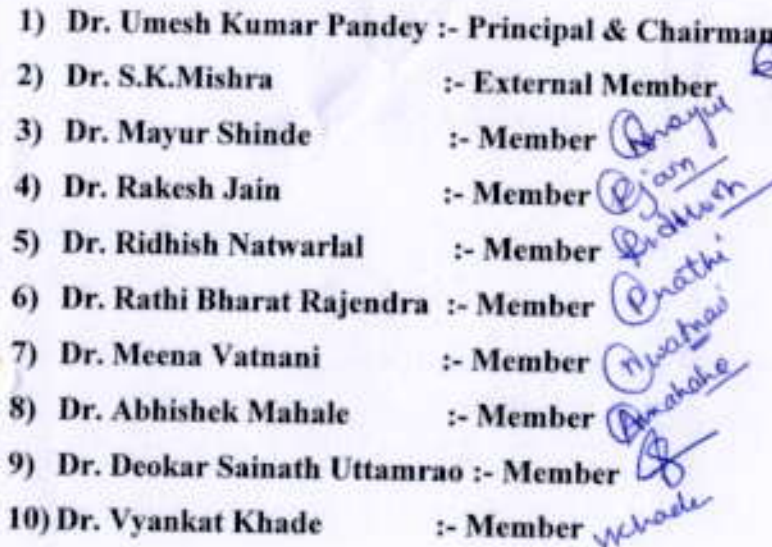 1) Dr. Umesh Kumar Pandey :- Principal & Chairman
2) Dr. S.K.Mishra :- External Member
3) Dr. Mayur Shinde :- Member
4) Dr. Rakesh Jain :- Member Rjain
5) Dr. Ridhish Natwarlal :- Member Ridhish
6) Dr. Rathi Bharat Rajendra :- Member Rathi
7) Dr. Meena Vatnani :- Member
8) Dr. Abhishek Mahale :- Member
9) Dr. Deokar Sainath Uttamrao :- Member
10) Dr. Vyankat Khade :- Member vkhade